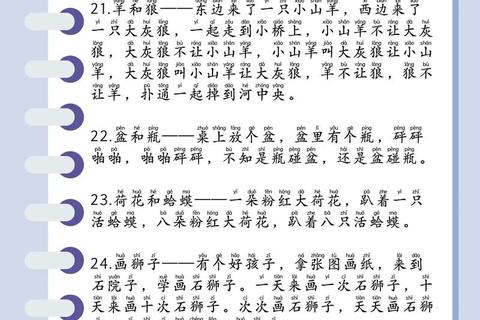 21.羊和狼——东边来了一只小山羊，西边来了
一只大灰狼，一起走到小桥上，小山羊不让大灰
狼，大灰狼不让小山羊，小山羊叫大灰狼让小山
羊，大灰狼叫小山羊让大灰狼，羊不让狼，狼不
让羊，扑通一起掉到河中央。
22.盆和瓶——桌上放个盆，盆里有个瓶，砰砰
啪啪，啪啪砰砰，不知是瓶碰盆，还是盆碰瓶。
23.荷花和蛤蟆——一朵粉红大荷花，趴着一只
活蛤蟆，八朵粉红大荷花，趴着八只活蛤蟆。
24.画狮子——有个好孩子，拿张图画纸，来到
石院子，学画石狮子。一天来画一次石狮子，十
天来画十次石狮子。次次画石狮子，天天画石狮